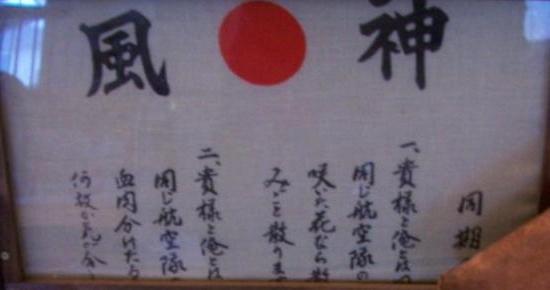 神風
同期
一、貴様と俺とは
同じ航空隊の
咲いた花なら散
みごと散りま
二、貴様と俺とは
同じ航空隊
血肉分けたる
何故か気が合